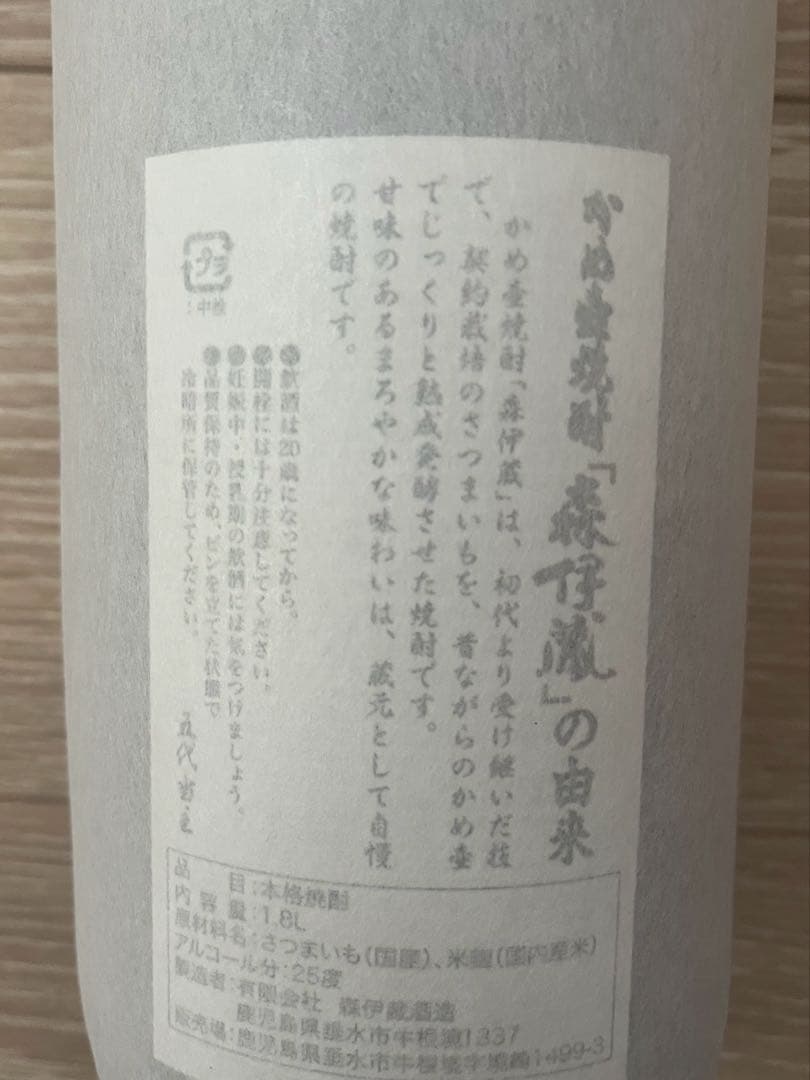 かめ壺焼酎「森伊蔵」の由来
かめ壺焼酎「森伊蔵」は、初代より受け継いだ技
で、契約栽培のさつまいもを、昔ながらのかめ壺
でじっくりと熟成発酵させた焼酎です。
甘味のあるまろやかな味わいは、蔵元として自慢
の焼酎です。
プラ
:中栓
●飲酒は20歳になってから。
●開栓には十分注意してください。
●妊娠中・授乳期の飲酒には気をつけましょう。
●品質保持のため、ビンを立てた状態で
冷暗所に保管してください。
五代当主
品目:本格焼酎
内容量:1.8L
原材料名:さつまいも(国産)、米麹(国内産米)
アルコール分:25度
製造者:有限会社 森伊蔵酒造
鹿児島県垂水市牛根麓1337
販売場:鹿児島県垂水市牛根境字1499-3